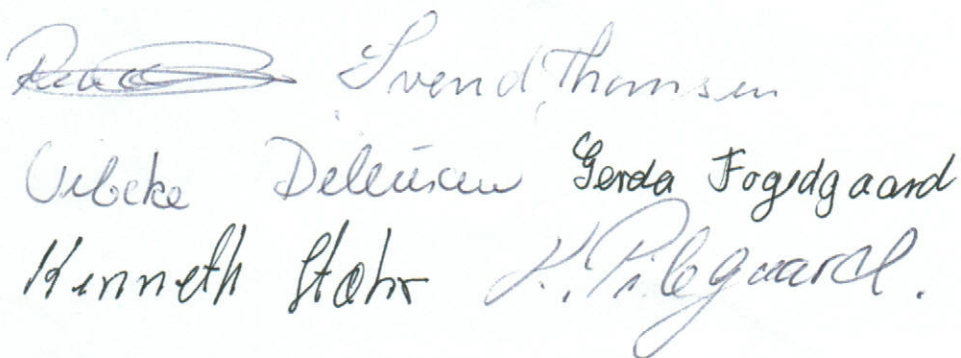 Svend Thomsen
Vibeke Deleuran Gerda Fogedgaard
Kenneth Stæhr K. Pilegaard.